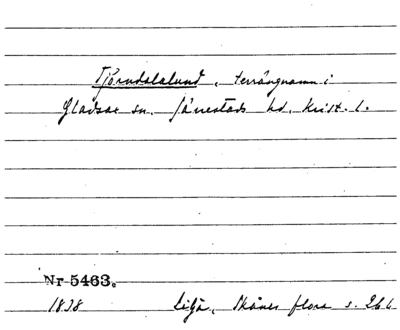 Tjörndalalund, terrängnamn i
Gladsax sn. Järrestads hd. Krist. l.
Nr 5463.
1838 Lilja, Skånes flora s. 266